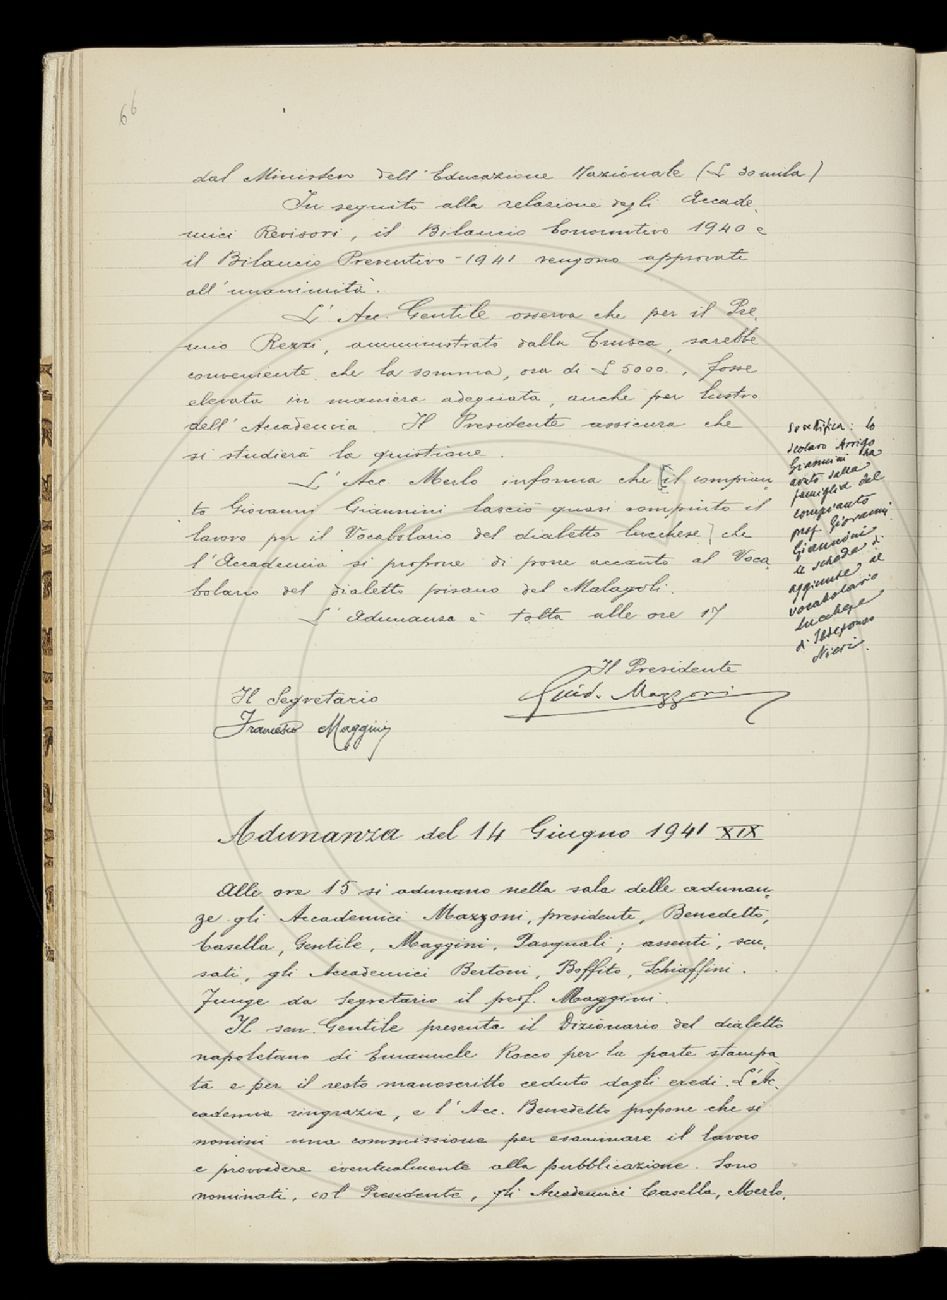 66
dal Ministero dell'Educazione Nazionale (£ 30 mila)
In seguito alla relazione degli Accade-
mici Revisori, il Bilancio Consuntivo 1940 e
il Bilancio Preventivo 1941 vengono approvati
all'unanimità.
L'Acc. Gentile osserva che per il Pre-
mio Rezzi, amministrato dalla Crusca, sarebbe
conveniente che la somma, ora di £ 5000., fosse
elevata in maniera adeguata, anche per lustro
dell'Accademia. Il Presidente assicura che
si studierà la quistione.
L'Acc. Merlo informa che [il compian-
to Giovanni Giannini lasciò quasi compiuto il
lavoro per il Vocabolario del dialetto lucchese] che
l'Accademia si propone di porre accanto al Voca-
bolario del dialetto pisano del Malagoli.
L'Adunanza è tolta alle ore 17
si rettifica: lo
scolaro Arrigo
Giannini ha
avuto dalla
famiglia del
compianto
prof. Giovanni
Giannini
le schede di
aggiunte al
vocabolario
lucchese
di Idelfonso
Nieri.
Il Presidente
Guido Mazzoni
Il Segretario
Francesco Maggini
Adunanza del 14 Giugno 1941 XIX
Alle ore 15 si adunano nella sala delle adunan-
ze gli Accademici Mazzoni, presidente, Benedetto,
Casella, Gentile, Maggini, Pasquali; assenti, scu-
sati, gli Accademici Bertoni, Boffito, Schiaffini.
Funge da segretario il prof. Maggini.
Il sen. Gentile presenta il Dizionario del dialetto
napoletano di Emanuele Rocco per la parte stampa-
ta e per il resto manoscritto ceduto dagli eredi. L'Ac-
cademia ringrazia, e l'Acc. Benedetto propone che si
nomini una commissione per esaminare il lavoro
e provvedere eventualmente alla pubblicazione. Sono
nominati, col Presidente, gli Accademici Casella, Merlo,